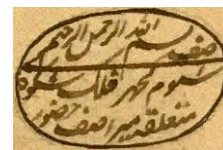 بسم الله الرحمن الرحیم
مهر فلک شکوه
متعلقه میر اصف حضور